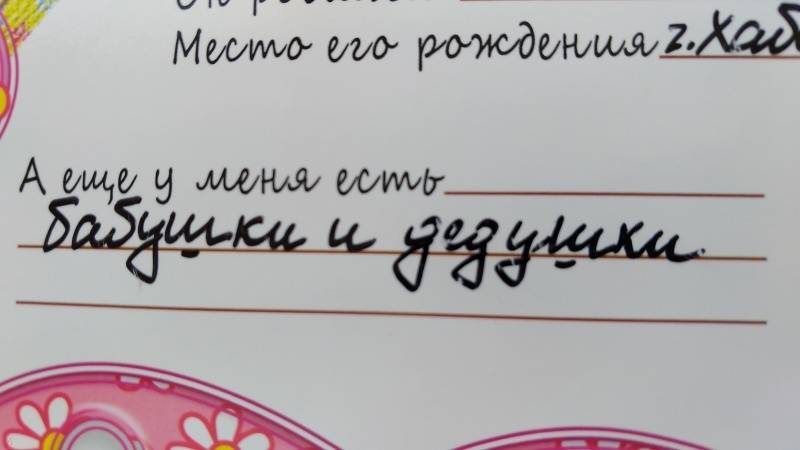 Место его рождения г. Хаб
А еще у меня есть
бабушки и дедушки